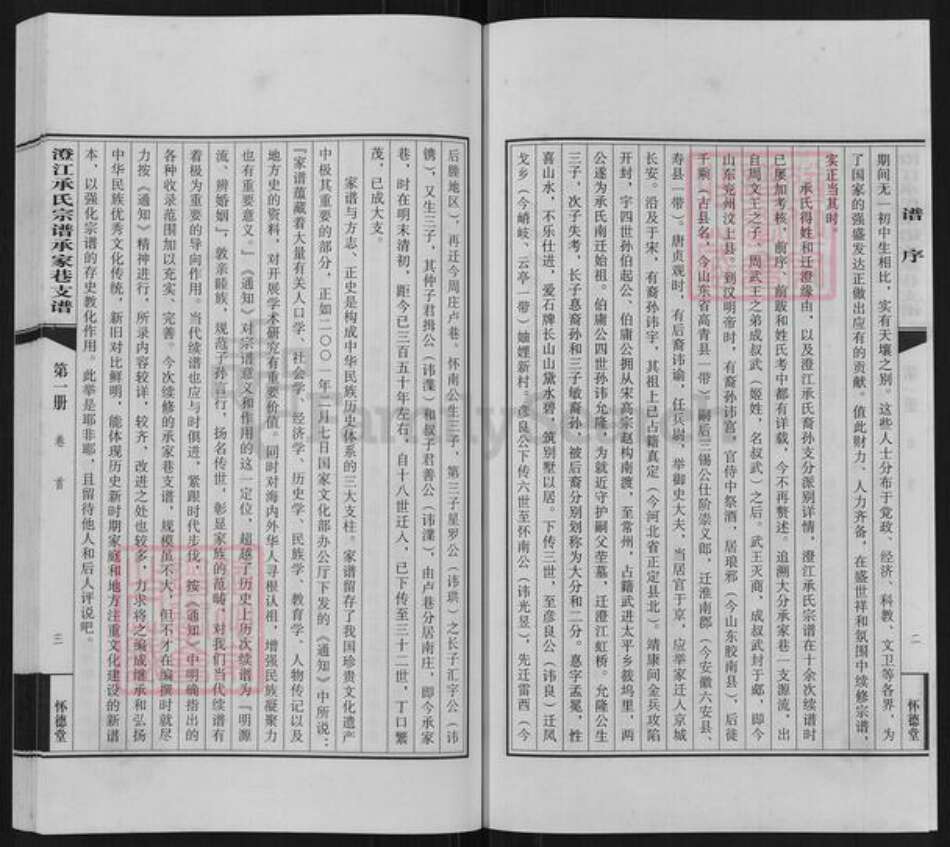 谱序
二
怀德堂
期间无一初中生相比，实有天壤之别。这些人士分布于党政、经济、科教、文卫等各界，为
了国家的强盛发达正做出应有的贡献。值此财力、人力齐备，在盛世祥和氛围中续修宗谱，
实正当其时。
承氏得姓和迁澄缘由，以及澄江承氏裔孙支分派别详情，澄江承氏宗谱在十余次续谱时
已屡加考核，前序、前跋和姓氏考中都有详载，今不再赘述。追溯大分承家巷一支源流，出
自周文王之子、周武王之弟成叔武（姬姓，名叔武）之后。武王灭商，成叔武封于郕，即今
山东兖州汶上县。到汉明帝时，有裔孙讳宫，官侍中祭酒，居琅邪（今山东胶南县），后徙
千乘（古县名，今山东省高青县一带）。嗣后三锡公仕阶崇义郎，迁淮南郡（今安徽六安县、
寿县一带）。唐贞观时，有后裔讳谕，任兵尉，举御史大夫，当居官于京，应举家迁入京城
长安。沿及于宋，有裔孙讳宇，其祖上已占籍真定（今河北省正定县北）。靖康间金兵攻陷
开封，宇四世孙伯起公、伯庸公拥从宋高宗赵构南渡，至常州，占籍武进太平乡筱坞里，两
公遂为承氏南迁始祖。伯庸公四世孙讳允隆，为就近守护嗣父茔墓，迁澄江虹桥。允隆公生
三子，次子失考，长子惪裔孙和三子敏裔孙，被后裔分别划称为大分和二分。惪字孟冕，性
喜山水，不乐仕进，爱石牌长山山黛水碧，筑别墅以居。下传三世，至彦良公（讳良）迁凤
戈乡（今峭岐、云亭一带）妯娌新村。彦良公下传六世至怀南公（讳光昱），先迁雷西（今
后塍地区），再迁今周庄卢巷。怀南公生三子，第三子星罗公（讳琪）之长子汇宇公（讳
镌），又生三子，其仲子君揖公（讳濮）和叔子君善公（讳濼），由卢巷分居南庄，即今承家
巷，时在明末清初，距今已三百五十年左右。自十八世迁入，已下传至三十二世，丁口繁
茂，已成大支。
家谱与方志、正史是构成中华民族历史体系的三大支柱。家谱留存了我国珍贵文化遗产
中极其重要的部分，正如二〇〇一年二月七日国家文化部办公厅下发的《通知》中所说：
『家谱蕴藏着大量有关人口学、社会学、经济学、历史学、民族学、教育学、人物传记以及
地方史的资料，对开展学术研究有重要价值。同时对海内外华人寻根认祖，增强民族凝聚力
也有重要意义。』《通知》对宗谱意义和作用的这一定位，超越了历史上历次续谱为『明源
流、辨婚姻』，敦亲睦族，规范子孙言行，扬名传世，彰显家族的范畴，对我们当代续谱有
着极为重要的导向作用。当代续谱也应与时俱进，紧跟时代步伐，按《通知》中明确指出的
各种收录范围加以充实、完善。今次续修的承家巷支谱，规模虽不大，但不才在编撰时就尽
力按《通知》精神进行，所录内容较详，较齐，改进之处也较多，力求将之编成继承和弘扬
中华民族优秀文化传统，新旧对比鲜明，能体现历史新时期家庭和地方注重文化建设的新谱
本，以强化宗谱的存史教化作用。此举是耶非耶，且留待他人和后人评说吧。
澄江承氏宗谱承家巷支谱
第一册
卷首
三
怀德堂
FamilySearch